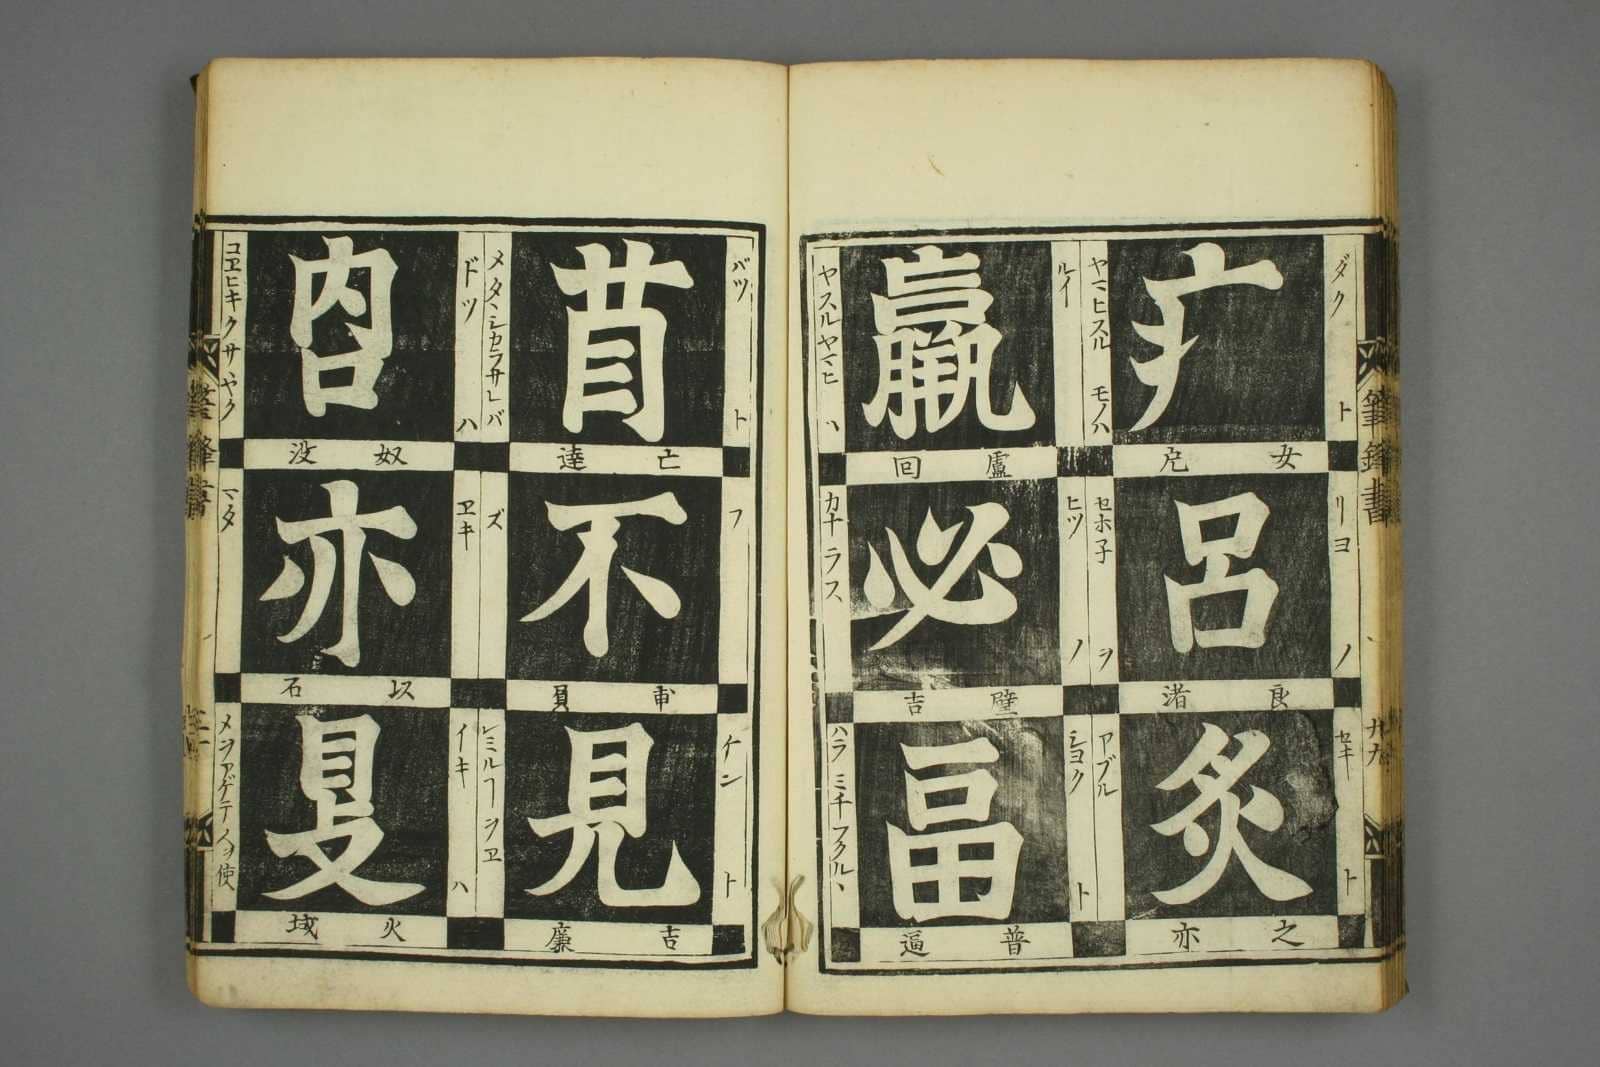 ダク
疒
ト
女 戹
ヤマヒスル モノハ
リヨ
呂
ノ
良 渚
セホ子 ヲ
セキ
炙
ト
之 亦
アブル
ルイ
羸
盧 回
ヤスルヤマヒ ハ
ヒツ
必
ノ
壁 吉
カナラス
シヨク
畐
ト
普 逼
ハラ ミチフクルヽ
筆鋒書
九
バツ
苜
ト
亡 達
メタヽシカラサレバ
フ
不
甫 負
ズ
ケン
見
ト
吉 廉
ミルーヲヱ
ドツ
㕯
ハ
奴 没
コヱヒキクサヽヤク
ヱキ
亦
以 石
マタ
イキ
夐
ハ
火 域
メヲアゲテ人ヲ使
筆鋒書